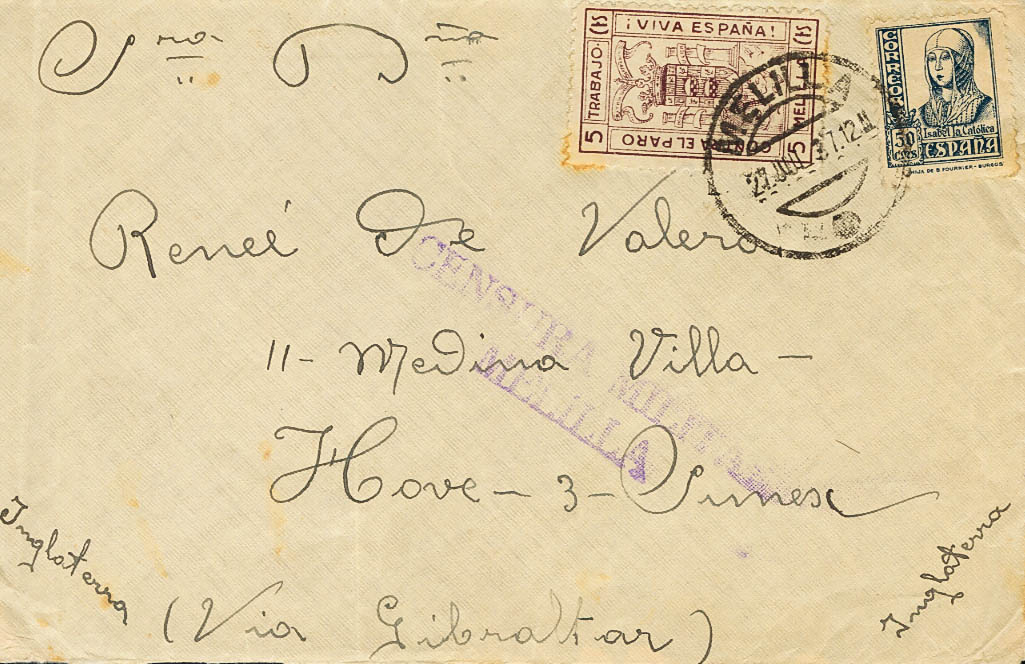 Sra Dña
¡VIVA ESPAÑA!
5 TRABAJO
CONTRA EL PARO
5
CORREOS
50 CTS
Isabel la Católica
ESPAÑA
HIJA DE B. FOURNIER-BURGOS
MELILLA
Reneé De Valero
CENSURA MILITAR
MELILLA
11- Medina Villa -
Hove - 3 - Sunex
Inglaterra
Inglaterra
(Via Gibraltar)